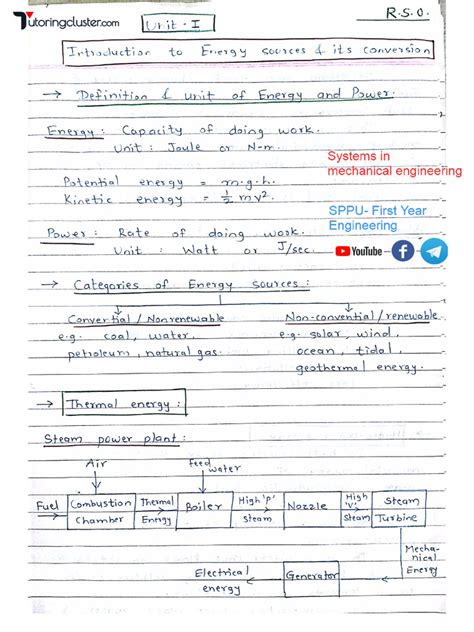 Tutoringcluster.com
Unit - I
R.S.O.
Introduction to Energy sources & its conversion
→ Definition & unit of Energy and Power.
Energy : Capacity of doing work.
Unit : Joule or N-m.
Systems in
mechanical engineering
Potential energy = m.g.h.
Kinetic energy = ½ mv².
SPPU- First Year
Engineering
Power : Rate of doing work.
Unit : Watt or J/sec.
YouTube
→ Categories of Energy sources :
Convential / Nonrenewable
e.g. coal, water,
petroleum, natural gas.
Non-convential / renewable
e.g. solar, wind,
ocean, tidal,
geothermal energy.
→ Thermal energy :
Steam power plant :
Air
feed water
Fuel
Combustion Chamber
Thermal Energy
Boiler
High 'P' Steam
Nozzle
High 'V' Steam
Steam Turbine
Mecha-
nical
Energy
Generator
Electrical
energy